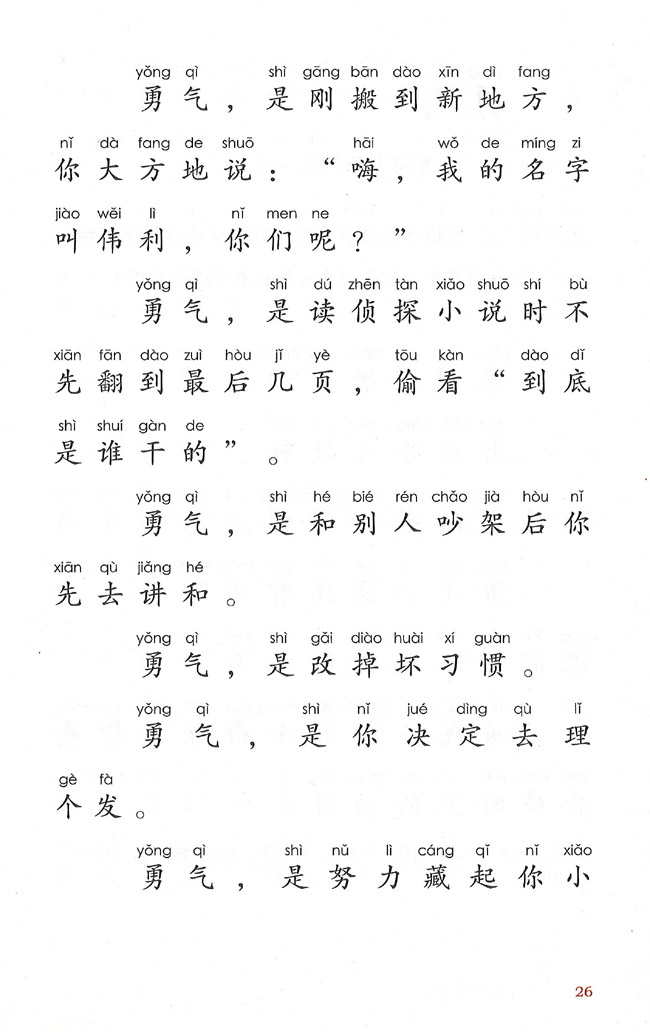 yǒng qì shì gāng bān dào xīn dì fang
勇气，是刚搬到新地方，
nǐ dà fang de shuō hāi wǒ de míng zi
你大方地说：“嗨，我的名字
jiào wěi lì nǐ men ne
叫伟利，你们呢？”
yǒng qì shì dú zhēn tàn xiǎo shuō shí bù
勇气，是读侦探小说时不
xiān fān dào zuì hòu jǐ yè tōu kàn dào dǐ
先翻到最后几页，偷看“到底
shì shuí gàn de
是谁干的”。
yǒng qì shì hé bié rén chǎo jià hòu nǐ
勇气，是和别人吵架后你
xiān qù jiǎng hé
先去讲和。
yǒng qì shì gǎi diào huài xí guàn
勇气，是改掉坏习惯。
yǒng qì shì nǐ jué dìng qù lǐ
勇气，是你决定去理
gè fà
个发。
yǒng qì shì nǔ lì cáng qǐ nǐ xiǎo
勇气，是努力藏起你小
26